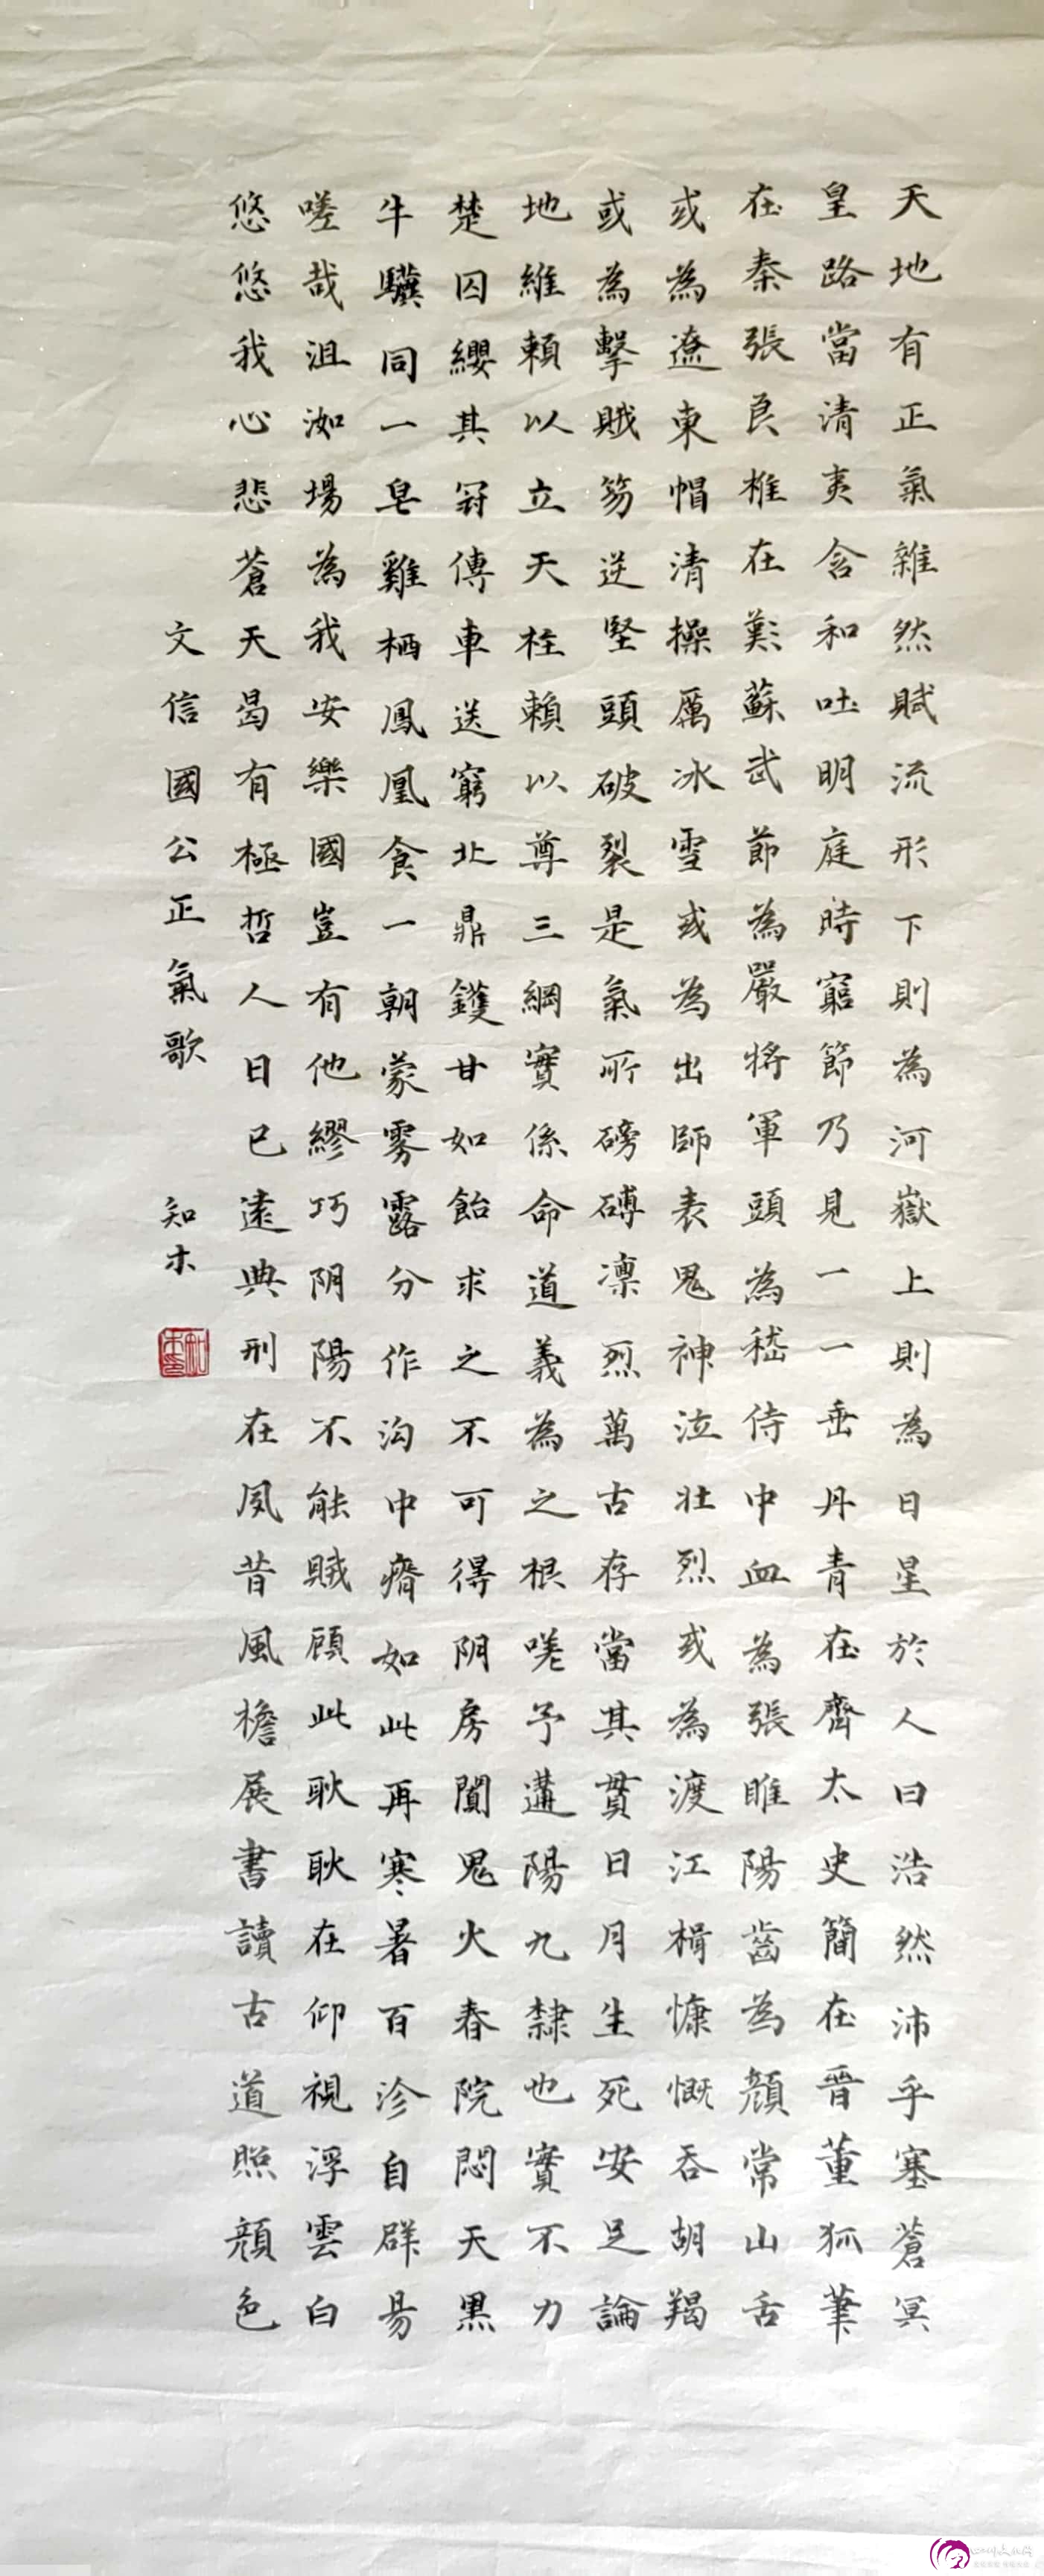 天地有正氣雜然賦流形下則為河嶽上則為日星於人曰浩然沛乎塞蒼冥
皇路當清夷含和吐明庭時窮節乃見一一垂丹青在齊太史簡在晉董狐筆
在秦張良椎在漢蘇武節為嚴將軍頭為嵇侍中血為張睢陽齒為顏常山舌
或為遼東帽清操厲冰雪或為出師表鬼神泣壯烈或為渡江楫慷慨吞胡羯
或為擊賊笏逆堅頭破裂是氣所磅礴凛烈萬古存當其貫日月生死安足論
地維賴以立天柱賴以尊三綱實係命道義為之根嗟予遘陽九隸也實不力
楚囚纓其冠傳車送窮北鼎鑊甘如飴求之不可得阴房闃鬼火春院閟天黑
牛驥同一皂雞栖鳳凰食一朝蒙雾露分作沟中瘠如此再寒暑百沴自辟易
嗟哉沮洳場為我安樂國豈有他繆巧阴陽不能賊顧此耿耿在仰視浮雲白
悠悠我心悲蒼天曷有極哲人日已遠典刑在夙昔風檐展書讀古道照顏色
文信國公正氣歌 知木